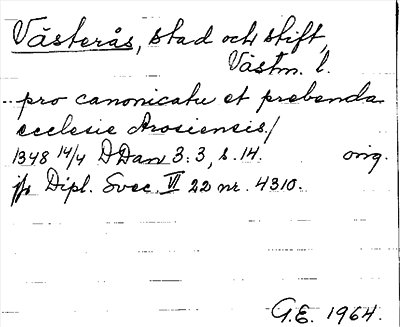 Västerås, stad och stift,
Västm. l.
pro canonicatu et prebenda
ecclesie Arosiensis/
1348 14/4 DDan 3:3, s. 14. orig.
jfr Dipl. Svec. VI 22 nr. 4310.
G.E. 1964.